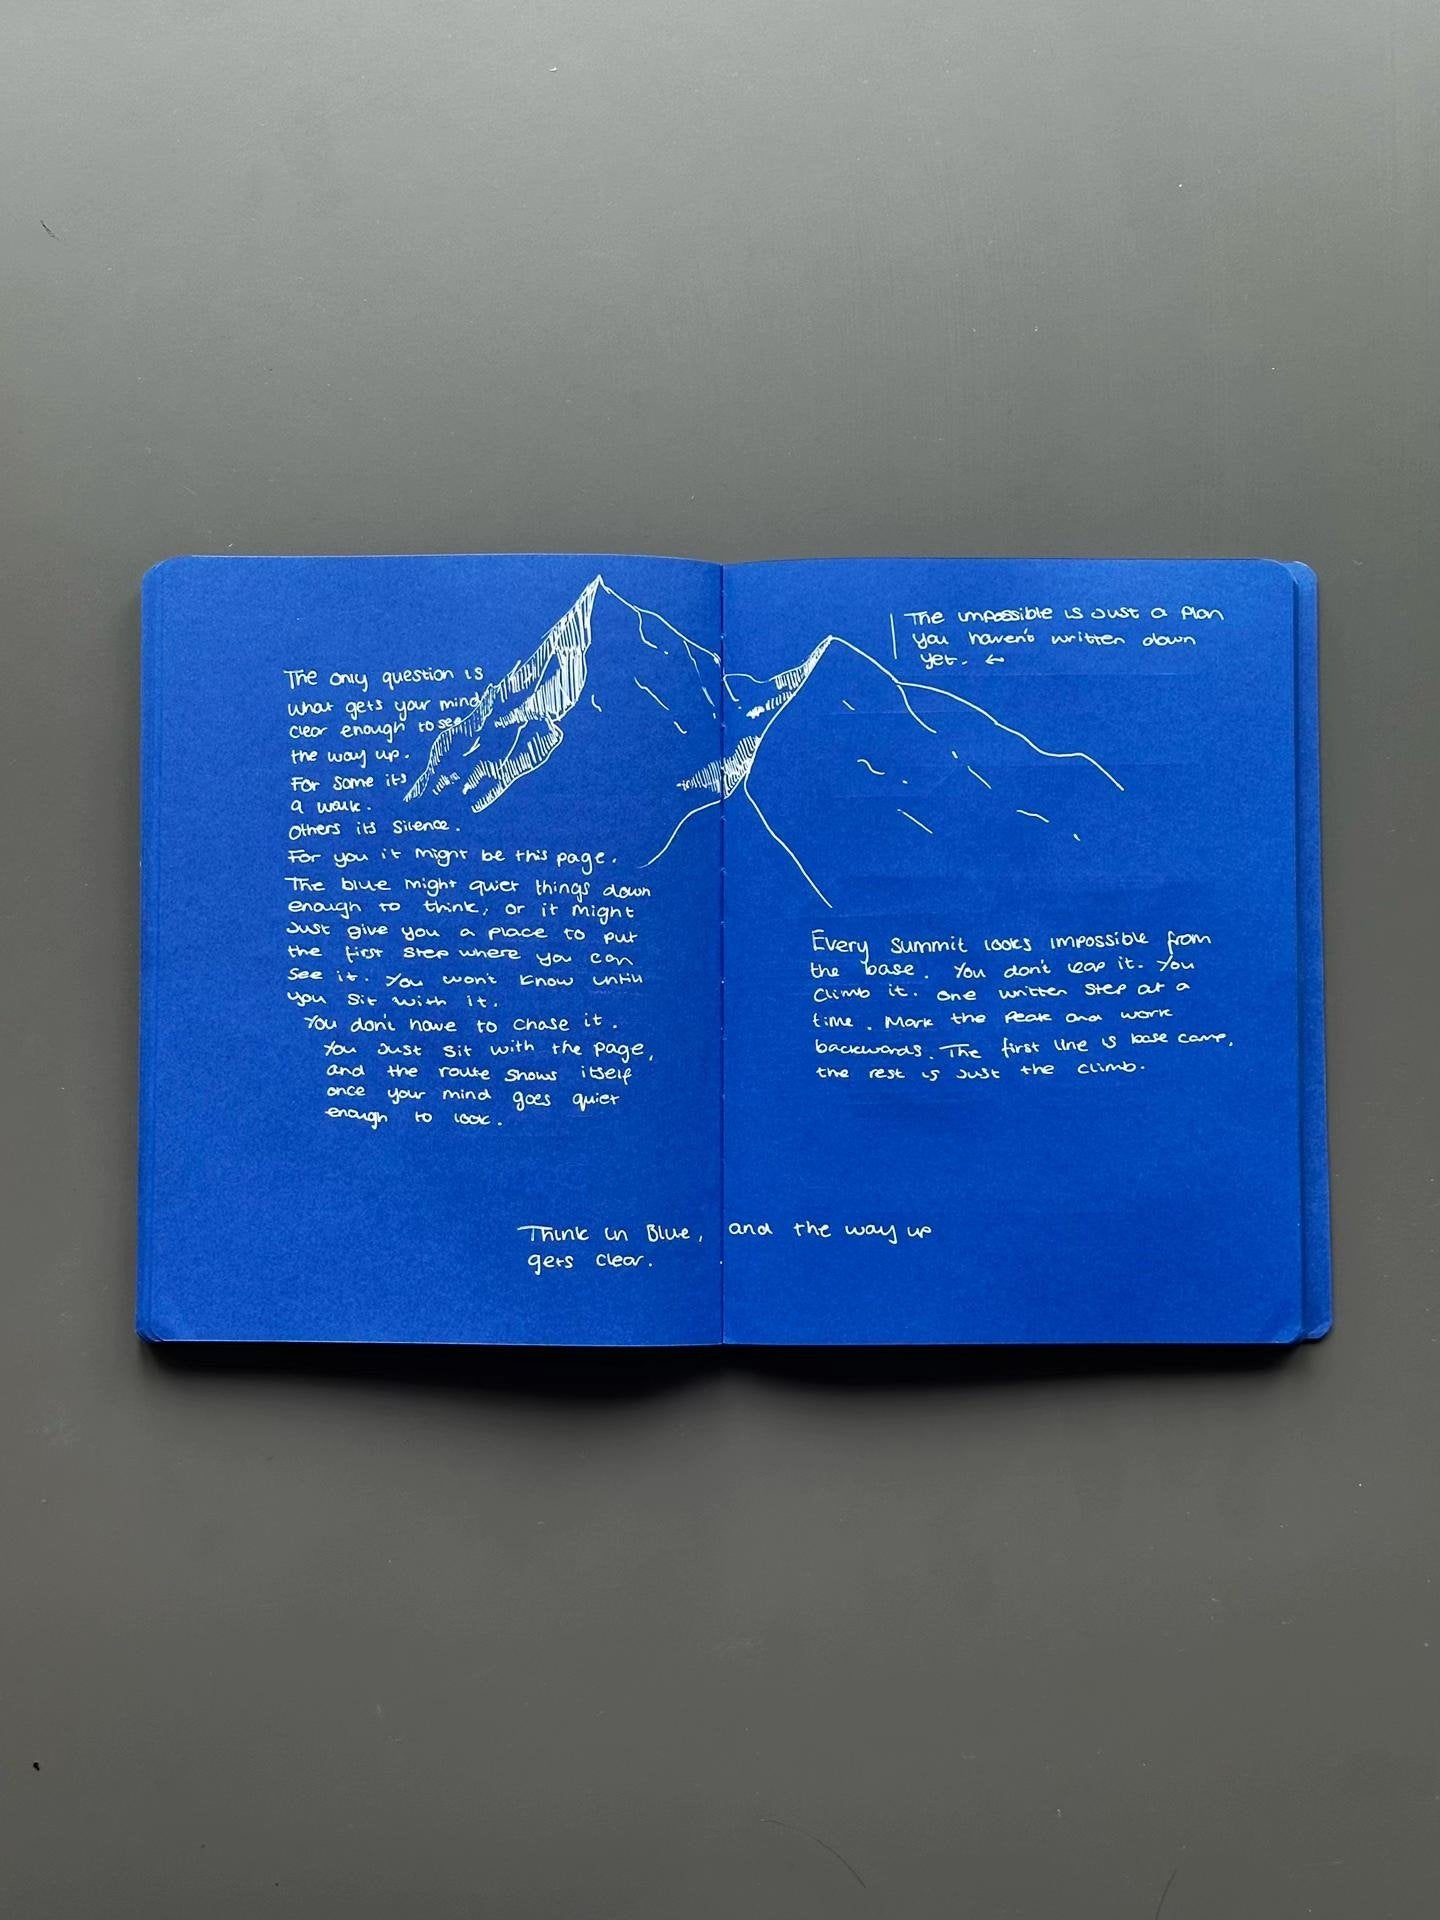 The only question is
what gets your mind
clear enough to see
the way up.
For some its
a walk.
Others its silence.
For you it might be this page.
The blue might quiet things down
enough to think, or it might
Just give you a place to put
the first step where you can
see it. You won't know until
you sit with it.
You don't have to chase it.
You Just sit with the page,
and the route shows itself
once your mind goes quiet
enough to look.
The impossible is Just a plan
you haven't written down
yet. ←
Every summit looks impossible from
the base. You don't leap it. You
climb it. One written step at a
time. Mark the peak and work
backwards. The first line is base camp,
the rest is Just the climb.
Think in Blue, and the way up
gets clear.